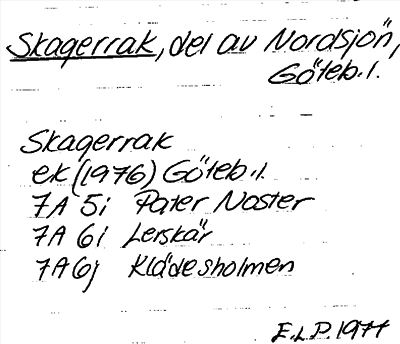 Skagerrak, del av Nordsjön,
Göteb. l.
Skagerrak
ek (1976) Göteb. l.
7A 5i Pater Noster
7A 6i Lerskär
7A 6j Klädesholmen
E.L.P. 1977